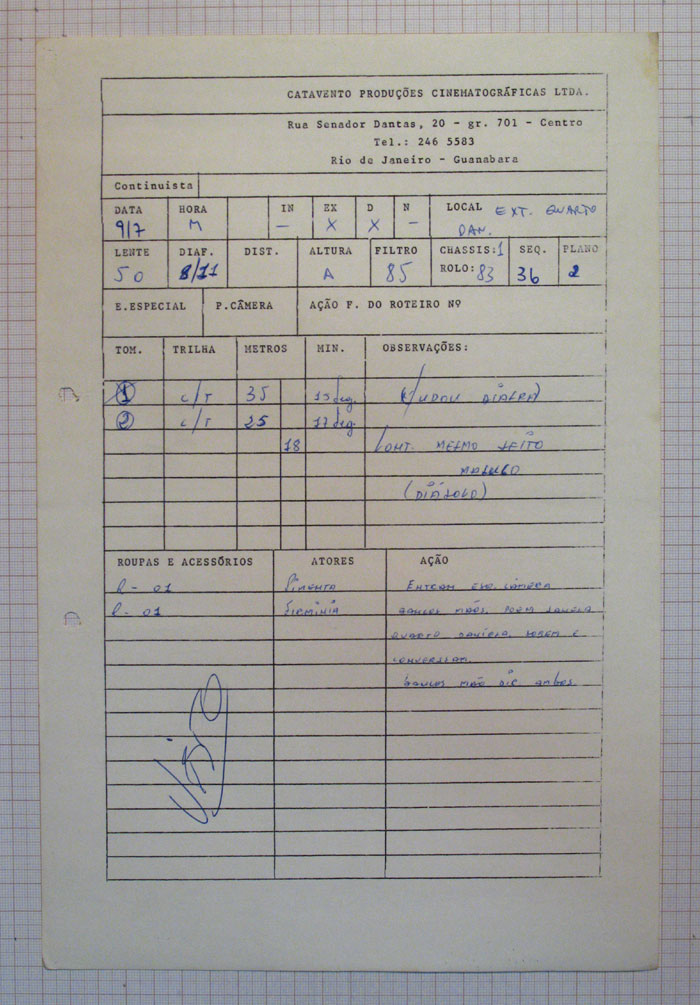 CATAVENTO PRODUÇÕES CINEMATOGRÁFICAS LTDA.
Rua Senador Dantas, 20 - gr. 701 - Centro
Tel.: 246 5583
Rio de Janeiro - Guanabara
Continuista
DATA HORA IN EX D N LOCAL EXT. QUARTO
9/7 M — X X - DAN.
LENTE DIAF. DIST. ALTURA FILTRO CHASSIS: 1 SEQ. PLANO
50 8/11 A 85 ROLO: 83 36 2
E.ESPECIAL P.CÂMERA AÇÃO F. DO ROTEIRO Nº
TOM. TRILHA METROS MIN. OBSERVAÇÕES:
1 c/T 35 15 seg.
2 c/T 25 17 seg.
18 CONT. MESMO JEITO
MALUCO
(DIÁLOGO)
ROUPAS E ACESSÓRIOS ATORES AÇÃO
R - 01 Pimenta ENTRAM ESQ. CÂMERA
R - 01 Firmínia
QUARTO DANIELA. E
CONVERSAM.
MÃO AMBOS.